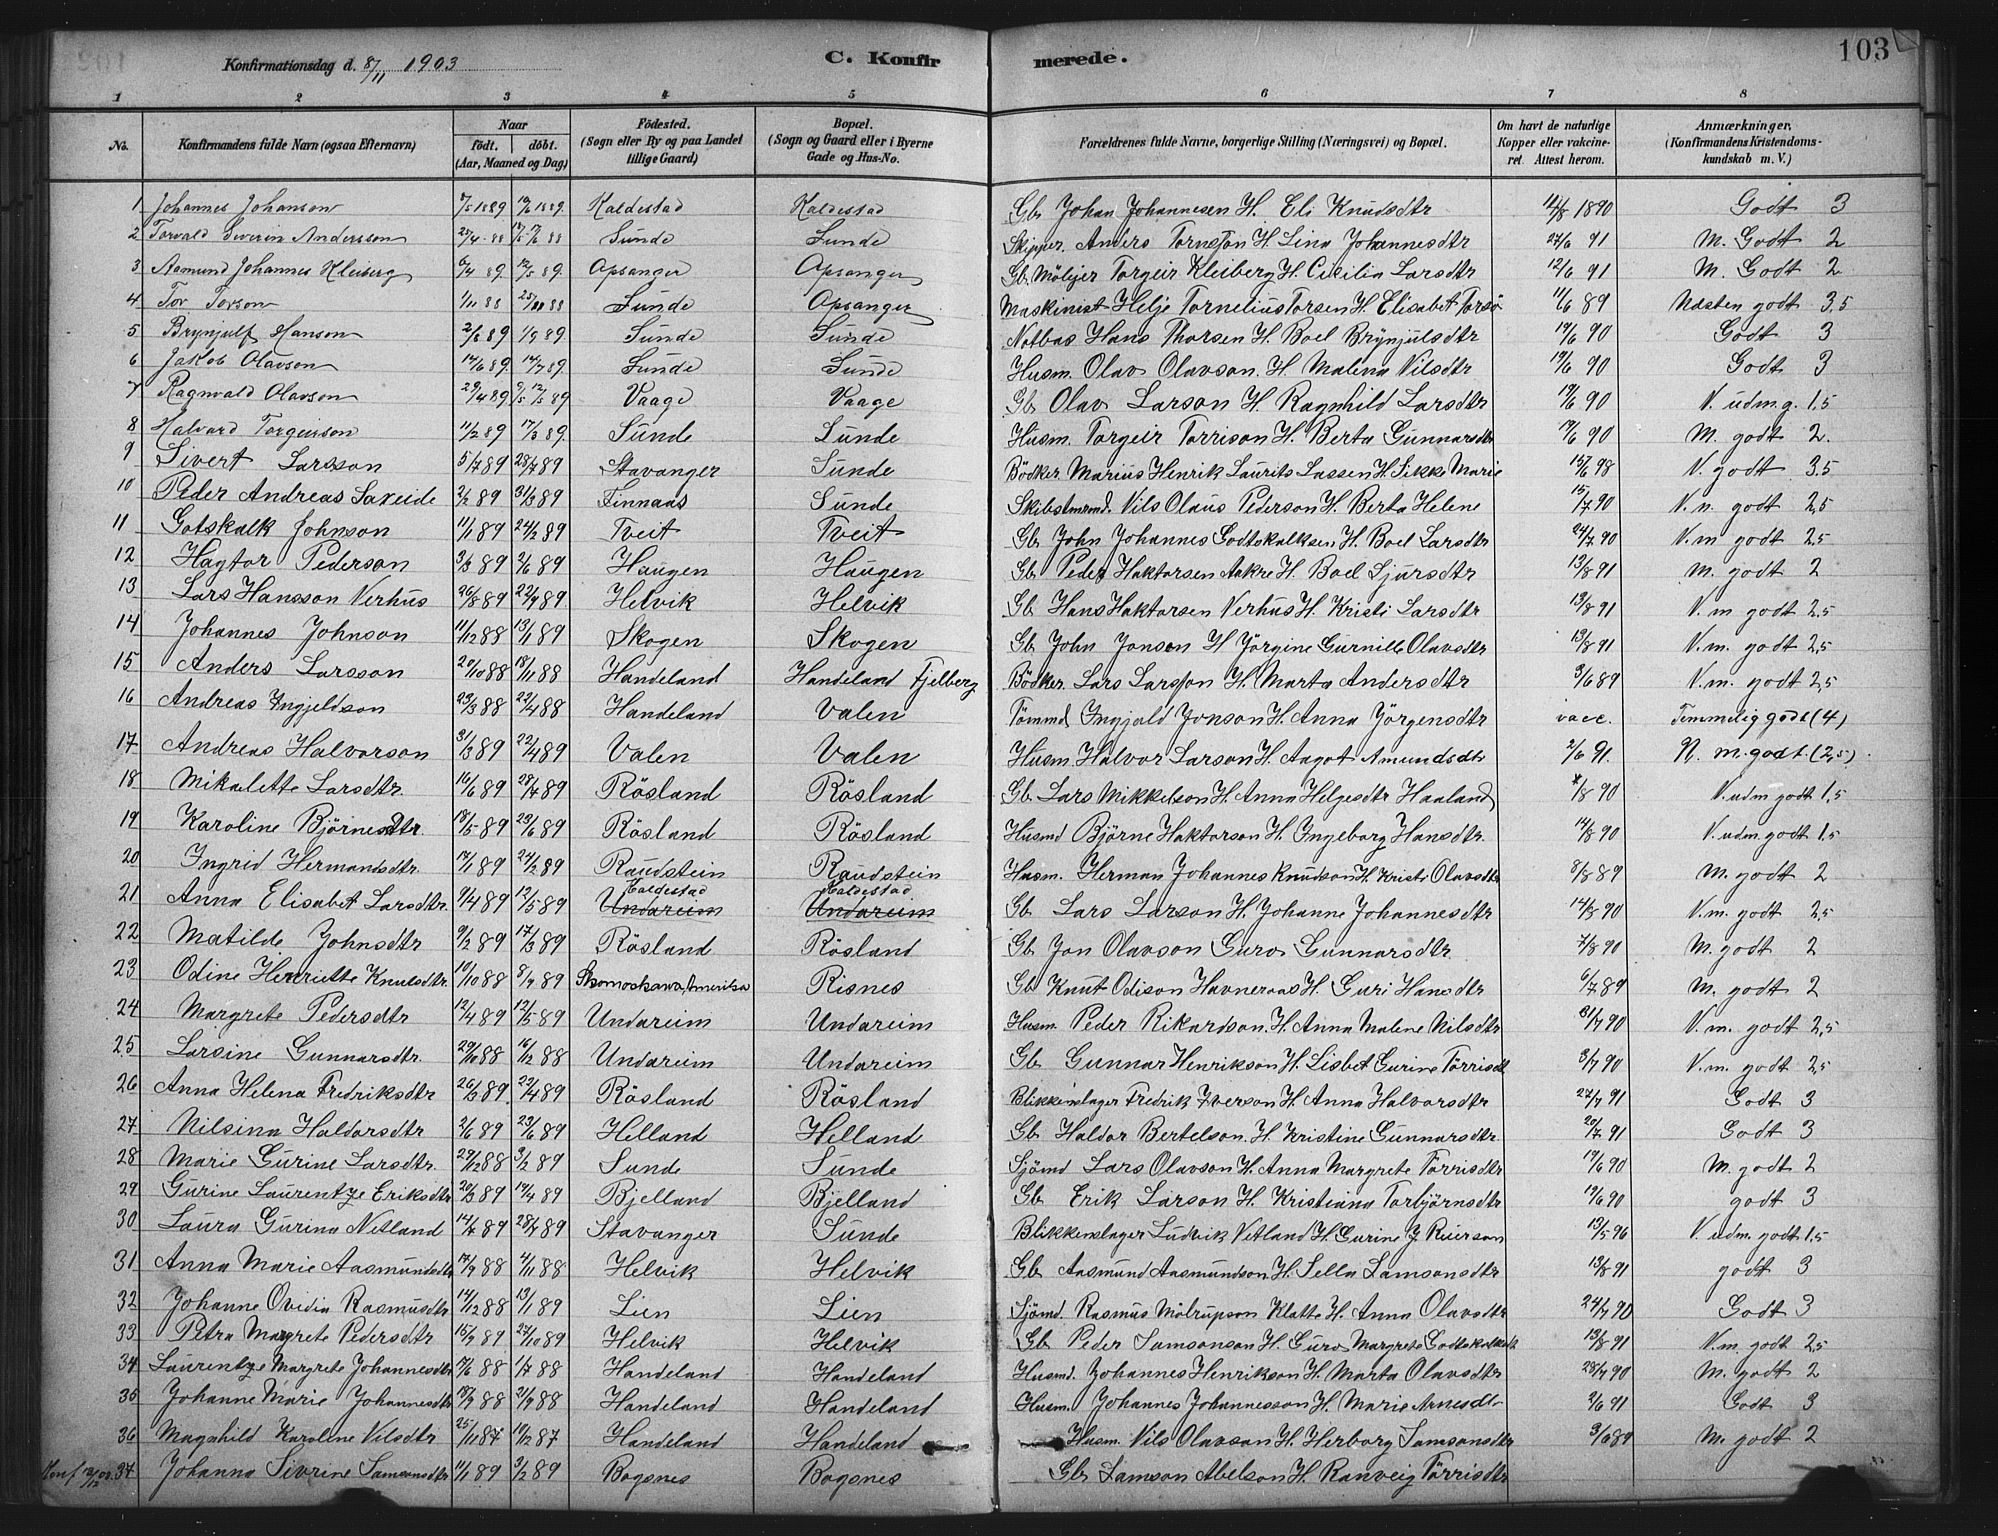 Konfirmationsdag d. 8/11 1903
C. Konfirmerede.
103
1 2 3 4 5 6 7 8
No. Konfirmandens fulde Navn (ogsaa Efternavn) Naar født. døbt. (Aar, Maaned og Dag) Fødested. (Sogn eller By og paa Landet tillige Gaard) Bopæl. (Sogn og Gaard eller i Byerne Gade og Hus-No. Forældrenes fulde Navne, borgerlige Stilling (Næringsvei) og Bopæl. Om havt de naturlige Kopper eller vakcineret. Attest herom. Anmærkninger. (Konfirmandens Kristendomskundskab m. V.)
1 Johannes Johanson 7/5 1889 10/6 1889. Kaldestad Kaldestad Gb. Johan Johannesen H. Eli Knudsdtr 14/8 1890 Godt 3
2 Torvald Severin Andersson 25/4 88 Sunde Sunde Skipper. Anders Tornesson H. Lina Johannesdtr 27/6 91 M. Godt 2
3 Aamund Johannes Kleiberg 6/4 89. 12/5 89. Opsanger Opsanger Gb. Torgeir Kleiberg H. Cecilia Larsdtr 12/6 91 M. Godt 2
4 Tor Torson 1/11 88 25/11 88 Sunde Opsanger Maskinist Helje Tornelius Torsen H. Elisabet 11/6 89 Næsten godt 3,5
5 Brynjulf Hanson 2/8 89 1/9 89. Sunde Sunde Notbas Hans Thorsen H. Boel Brynjulsdtr 19/6 90 Godt 3
6 Jakob Olavson 14/6 89. 14/7 89. Sunde Sunde Husm. Olav Olavson. H. Malena Nilsdtr 19/6 90 Godt 3
7 Ragnvald Olavson 29/4 89 12/5 89 Vaage Vaage Gb. Olav Larson H. Ragnhild Larsdtr 19/6 90 V. udm. g. 1,5
8 Halvard Torgeirson 11/2 89 17/3 89. Sunde Sunde Husm. Torgeir Torrison H. Berta Gunnarsdtr 19/6 90 M. godt 2.
9 Sivert Larsson 5/7 89 28/7 89 Stavanger Sunde Bödker. Marius Henrik Laurits Lassen H. Sikke Marie 15/6 98 V. godt 3.5
10 Peder Andreas Saxeide 2/2 89 31/3 89 Finnaas Sunde Skibstmrmd. Nils Olaus Pederson H. Berta Helene 15/7 90 V. n. godt 2,5
11 Gotskalk Johnson 11/1 89 24/2 89 Tveit Tveit Gb. John Johannes Godtskalksen H. Boel Larsdtr 24/7 90 V. m godt 2,5
12 Hagtor Pederson 3/3 89 2/6 89 Haugen Haugen Gb. Peder Haktorsen Aakre H. Boel Sjursdtr 13/8 91 M. godt 2
13 Lars Hansson Verhus 26/8 89 22/9 89. Helvik Helvik Gb. Hans Haktorsen Verhus H. Kristi Larsdtr 13/8 91 V. m godt 2,5
14 Johannes Johnson 11/12 88 13/1 89 Skogen Skogen Gb. John Jonson H Jörgine Gurnille Olavsdtr 13/8 91 V. m. godt 2,5
15 Anders Larsson 20/10 88 18/11 88 Handeland Handeland Fjelberg Bödker. Lars Larsson H. Marta Andersdtr 3/6 89 V. m. godt 2,5
16 Andreas Ingjeldson 23/3 88 22/4 88 Handeland Valen Tömmd Ingjald Jonson H. Anna Jörgensdtr vacc. Temmelig godt (4)
17 Andreas Halvorson 31/3 89 22/4 89 Valen Valen Husm. Halvor Larson H. Aagot Amundsdtr 2/6 91. N. m. godt (2,5)
18 Mikalette Larsdtr. 16/6 89 28/7 89 Rösland Rösland Gb. Lars Mikkelson H. Anna Helgesdtr Haaland 8 90 V. udm godt 1,5
19 Karoline Bjørnesdtr. 18/5 89 23/6 89 Rösland Rösland Husmd Björne Haktorson H. Ingeborg Hansdtr. 14/8 90 V. udm. godt 1,5
20 Ingrid Hermansdtr. 14/1 89 24/2 89 Raudstein Raudstein Husm. Herman Johannes Knudson H. Kristi Olavsdtr 8/8 89 M. godt 2
21 Anna Elisabet Larsdtr. 9/4 89 12/5 89 Kaldestad Undareim Kaldestad Undareim Gb. Lars Larson H. Johanne Johannesdtr 14/8 90 V. m. godt 2,5
22 Matilde Johnsdtr 9/2 89 17/3 89 Rösland Rösland Gb. Jon Olavson Guro Gunnarsdtr 7/8 90 M. godt 2
23 Odine Henriette Knutsdtr. 10/10 88 8/9 89 Skomoskawa, Amerika Risnes Gb. Knut Odison Havneraas H. Guri Hansdtr 6/7 89 M. godt 2
24 Margrete Pedersdtr 12/4 89 12/5 89 Undareim Undareim Husm. Peder Rikardson H. Anna Malene Nilsdtr 31/7 90 V. m. godt 2,5
25 Larsine Gunnarsdtr. 29/10 88 16/12 88 Undareim Undareim Gb. Gunnar Henrikson H. Lisbet Gurine Törrisdt 3/7 90 V. m. godt 2,5
26 Anna Helena Fredriksdtr 26/3 89. 22/4 89 Rösland Rösland Blikkenslager Fredrik Iverson H. Anna Halvorsdtr 27/7 91 Godt 3
27 Nilsina Haldorsdtr 2/6 89 23/6 89 Helland Helland Gb. Haldor Bertelson. H Kristine Gunnarsdtr. 20/7 91 Godt 3
28 Marie Gurine Larsdtr. 29/12 88 3/2 89 Sunde Sunde Sjömd Lars Olavson H. Anna Margrete Törrisdtr 19/6 90 M. godt 2
29 Gurine Laurentze Eriksdtr 20/3 89 19/4 89 Bjelland Bjelland Gb. Erik Larson H. Kristiana Torbjörnsdtr 19/6 90 godt 3
30 Laura Gurina Netland 14/6 89 28/7 89 Stavanger Sunde Blikkenslager Ludvik Netland H. Gurine J. Reierson 13/5 96 V. udm. godt 1,5
31 Anna Marie Aasmundsdtr 17/9 88 4/11 88 Helvik Helvik Gb. Aasmund Aasmundson H. Sella Samsonsdtr 13/8 91 godt 3
32 Johanne Ovidia Rasmusdtr 14/12 88 13/1 89 Lien Lien Sjömd. Rasmus Klatte H. Anna Olavsdtr 24/7 90 Godt 3
33 Petra Margrete Pedersdtr 15/9 89 27/10 89 Helvik Helvik Gb. Peder Samsonson H. Guro Margrete 13/8 91 V. m. godt 2,5
34 Laurentze Margrete Johannesdtr 17/6 88 1/7 88 Handeland Handeland Husmd. Johannes Henrikson H. Marta Olavsdtr 28/7 90 M. godt 2
35 Johanne Marie Johannesdtr 18/7 88 21/9 88 Handeland Handeland Husm. Johannes Johannesson H. Marie Arnesdtr 2/6 91 Godt 3
36 Magnhild Karoline Nilsdtr 25/11 87 19/12 87 Handeland Handeland Husm. Nils Olavson H. Herborg Samsonsdtr 3/6 89 M. godt 2
37 Johanna Sivrine Samsonsdtr 11/1 89 3/2 89 Bogsnes Bogsnes Gb. Samson Abelson H. Ranveig Törrisdtr